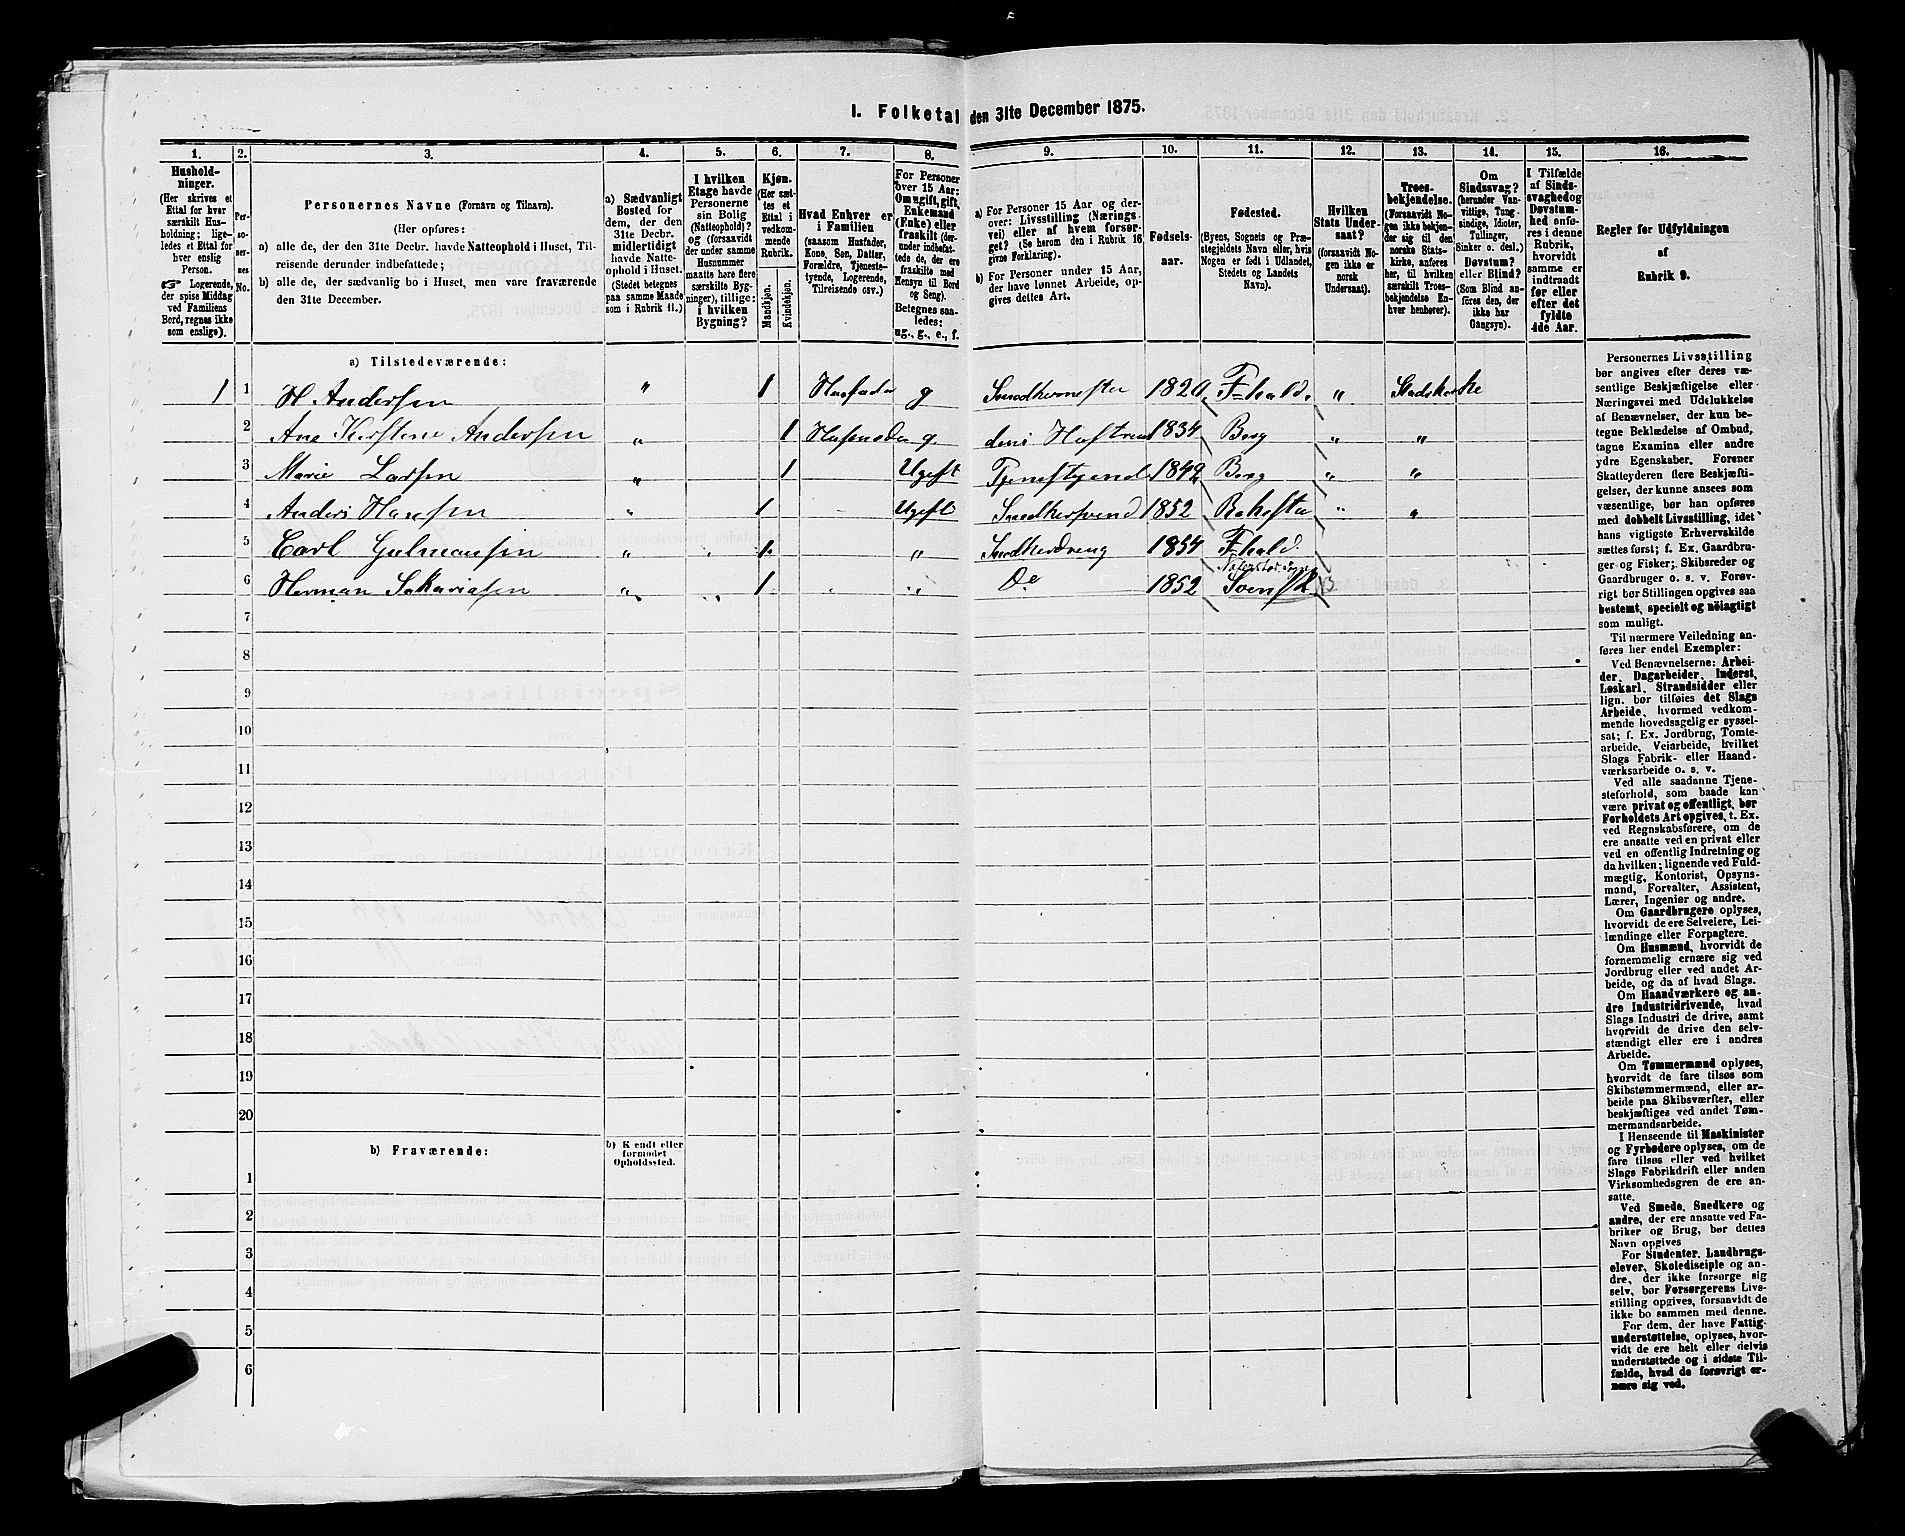 I. Folketal den 31te December 1875.
1. 2. 3. 4. 5. 6. 7. 8. 9. 10. 11. 12. 13. 14. 15. 16.
Hushold-
ninger.
(Her skrives et
Ettal for hver
særskilt Hus-
holdning; lige-
ledes et Ettal for
hver enslig
Person.
Logerende,
der spise Middag
ved Familiens
Bord, regnes ikke
som enslige).
Per-
so-
ner-
nes
No.
Personernes Navne (Fornavn og Tilnavn).
(Her opføres:
a) alle de, der den 31te Decbr. havde Natteophold i Huset, Til-
reisende derunder indbefattede;
b) alle de, der sædvanlig bo i Huset, men vare fraværende
den 31te December.
a) Sædvanligt
Bosted for
dem, der den
31te Decbr.
midlertidigt
havde Natte-
ophold i Huset.
(Stedet betegnes
paa samme Maade
som i Rubrik 11.)
I hvilken
Etage havde
Personerne
sin Bolig
(Natteophold)?
og (forsaavidt
der under samme
Husnummer
maatte høre flere
særskilte Byg-
ninger), tillige:
i hvilken
Bygning?
Kjøn.
(Her sæt-
tes et
Ettal i
vedkom-
mende
Rubrik.
Mandkjøn.
Kvindekjøn.
Hvad Enhver er
i Familien
(saasom Husfader,
Kone, Søn, Datter,
Forældre, Tjeneste-
tyende, Logerende,
Tilreisende osv.)
For Personer
over 15 Aar:
Om ugift, gift,
Enkemand
(Enke) eller
fraskilt (der-
under indbefat-
tede de, der ere
fraskilte med
Hensyn til Bord
og Seng).
Betegnes saa-
ledes:
ug., g., e., f.
a) For Personer 15 Aar og der-
over: Livsstilling (Nærings-
vei) eller af hvem forsør-
get? (Se herom den i Rubrik 16
givne Forklaring).
b) For Personer under 15 Aar,
der have lønnet Arbeide, op-
gives dettes Art.
Fødsels-
aar.
Fødested.
(Byens, Sognets og Præ-
stegjeldets Navn eller, hvis
Nogen er født i Udlandet,
Stedets og Landets
Navn).
Hvilken
Stats Under-
saat?
(forsaavidt No-
gen ikke er
norsk
Undersaat).
Troes-
bekjendelse.
(Forsaavidt No-
gen ikke bekjen-
der sig til den
norske Stats-
kirke, anføres
her, til hvilken
særskilt Troes-
bekjendelse En-
hver henhører).
Om
Sindssvag?
(herunder Van-
vittige, Tung-
sindige, Idioter,
Tullinger,
Sinker o. desl.)
Døvstum?
eller Blind?
(Som Blind an-
føres den, der
ikke har
Gangsyn).
I Tilfælde
af Sinds-
svaghed og
Døvstum-
hed anfø-
res i denne
Rubrik,
hvorvidt
samme er
indtraadt
før eller
efter det
fyldte
4de Aar.
Regler for Udfyldningen
af
Rubrik 9.
a) Tilstedeværende:
1 1 H Andersen " 1 Husfader g Snedkermester 1820. F=hald. " Stadskirke
2 Ane Kirstine Andersen " 1 g. dens Hustrue 1834 Berg " "
3 Marie Larsen " 1 Ugift Tjenestyende 1849 Berg " "
4 Anders Hansen " 1 Ugift Snedkersvend 1852 " "
5 Carl Gulmansen " 1 " Snedkerdreng 1854 F=hald.
6 Herman Sakariasen " 1 " Do 1852 Svensk
7
8
9
10
11
12
13
14
15
16
17
18
19
20
b) Fraværende:
b) Kjendt eller
formodet
Opholdssted.
1
2
3
4
5
6
Personernes Livsstilling
bør angives efter deres væ-
sentlige Beskjæftigelse eller
Næringsvei med Udelukkelse
af Benævnelser, der kun be-
tegne Beklædelse af Ombud,
tagne Examina eller andre
ydre Egenskaber. Forener
Skatteyderen flere Beskjæfti-
gelser, der kunne ansees som
væsentlige, bør han opføres
med dobbelt Livsstilling, idet
hans vigtigste Erhvervskilde
sættes først; f. Ex. Gaardbru-
ger og Fisker; Skibsreder og
Gaardbruger o. s. v. Forøv-
rigt bør Stillingen opgives saa
bestemt, specielt og nöiagtigt
som muligt.
Til nærmere Veiledning an-
føres her endel Exempler:
Ved Benævnelserne: Arbei-
der, Dagarbeider, Inderst,
Løskarl, Strandsidder eller
lign. bør tilføies det Slags
Arbeide, hvormed vedkom-
mende hovedsagelig er syssel-
sat; f. Ex. Jordbrug, Tomte-
arbeide, Veiarbeide, hvilket
Slags Fabrik- eller Haand-
værksarbeide o. s. v.
Ved alle saadanne Tjene-
steforhold, som baade kan
være privat og offentligt, bør
Forholdets Art opgives, t. Ex.
ved Regnskabsførere, om de
ere ansatte ved en privat eller
ved en offentlig Indretning og
da hvilken; lignende ved Fuld-
mægtig, Kontorist, Opsyns-
mand, Forvalter, Assistent,
Lærer, Ingeniør og andre.
Om Gaardbrugere oplyses,
hvorvidt de ere Selveiere, Lei-
lændinge eller Forpagtere.
Om Husmænd, hvorvidt de
fornemmelig ernære sig ved
Jordbrug eller ved andet Ar-
beide, og da af hvad Slags.
Om Haandværkere og an-
dre Industridrivende, hvad
Slags Industri de drive, samt
hvorvidt de drive den selv-
stændigt eller ere i andres
Arbeide.
Om Tømmermænd oplyses,
hvorvidt de fare tilsøs som
Skibstømmermænd, eller ar-
beide paa Skibsværfter, eller
beskjæftiges ved andet Tøm-
mermandsarbeide.
I Henseende til Maskinister
og Fyrbødere oplyses, om de
fare tilsøs eller ved hvilket
Slags Fabrikdrift eller anden
Virksomhedsgren de ere an-
satte.
Ved Smede, Snedkere og
andre, der ere ansatte ved Fa-
briker og Brug, bør dettes
Navn opgives
For Studenter, Landbrugs-
elever, Skoledisciple og an-
dre, der ikke forsørge sig
selv, bør Forsørgerens Livs-
stilling opgives, forsaavidt de
ikke bo sammen med denne.
For dem, der have Fattig-
understøttelse, oplyses, hvor-
vidt de ere helt eller delvis
understøttede og i sidste Til-
fælde, hvad de forøvrigt er-
nære sig ved.